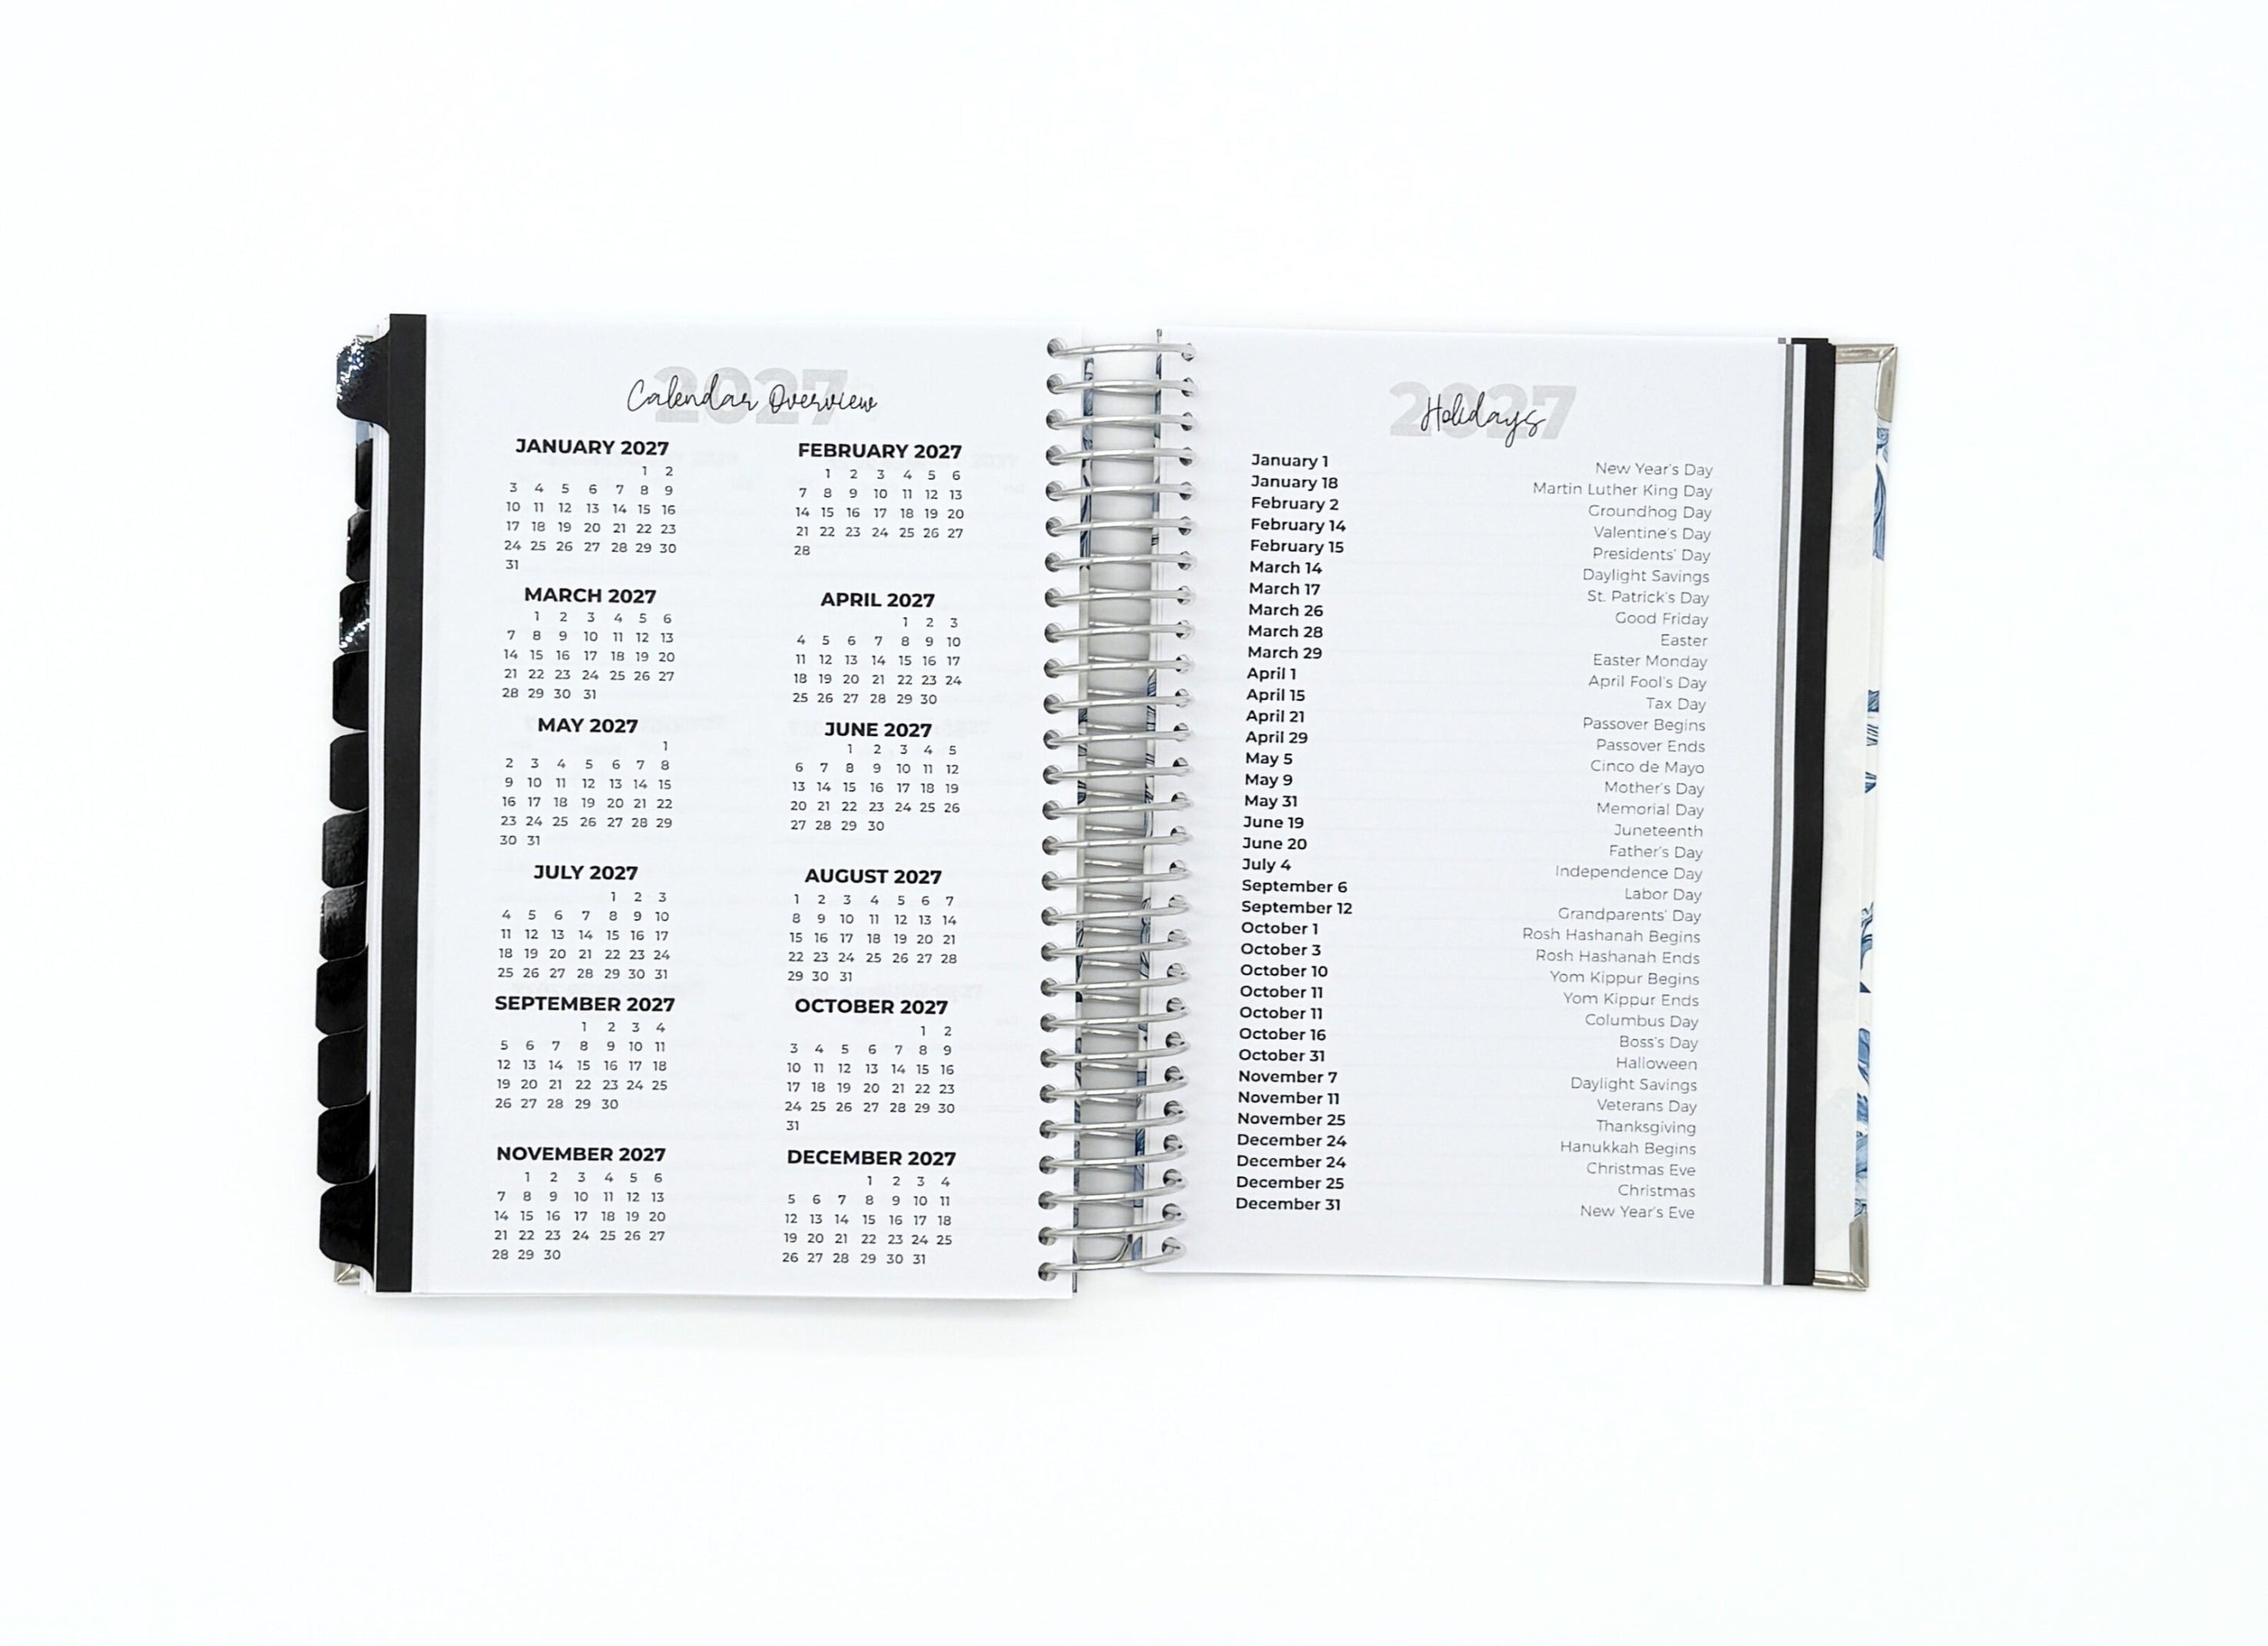 2027
Calendar Overview
JANUARY 2027
1 2
3 4 5 6 7 8 9
10 11 12 13 14 15 16
17 18 19 20 21 22 23
24 25 26 27 28 29 30
31
FEBRUARY 2027
1 2 3 4 5 6
7 8 9 10 11 12 13
14 15 16 17 18 19 20
21 22 23 24 25 26 27
28
MARCH 2027
1 2 3 4 5 6
7 8 9 10 11 12 13
14 15 16 17 18 19 20
21 22 23 24 25 26 27
28 29 30 31
APRIL 2027
1 2 3
4 5 6 7 8 9 10
11 12 13 14 15 16 17
18 19 20 21 22 23 24
25 26 27 28 29 30
MAY 2027
1
2 3 4 5 6 7 8
9 10 11 12 13 14 15
16 17 18 19 20 21 22
23 24 25 26 27 28 29
30 31
JUNE 2027
1 2 3 4 5
6 7 8 9 10 11 12
13 14 15 16 17 18 19
20 21 22 23 24 25 26
27 28 29 30
JULY 2027
1 2 3
4 5 6 7 8 9 10
11 12 13 14 15 16 17
18 19 20 21 22 23 24
25 26 27 28 29 30 31
AUGUST 2027
1 2 3 4 5 6 7
8 9 10 11 12 13 14
15 16 17 18 19 20 21
22 23 24 25 26 27 28
29 30 31
SEPTEMBER 2027
1 2 3 4
5 6 7 8 9 10 11
12 13 14 15 16 17 18
19 20 21 22 23 24 25
26 27 28 29 30
OCTOBER 2027
1 2
3 4 5 6 7 8 9
10 11 12 13 14 15 16
17 18 19 20 21 22 23
24 25 26 27 28 29 30
31
NOVEMBER 2027
1 2 3 4 5 6
7 8 9 10 11 12 13
14 15 16 17 18 19 20
21 22 23 24 25 26 27
28 29 30
DECEMBER 2027
1 2 3 4
5 6 7 8 9 10 11
12 13 14 15 16 17 18
19 20 21 22 23 24 25
26 27 28 29 30 31
2027
Holidays
January 1 New Year's Day
January 18 Martin Luther King Day
February 2 Groundhog Day
February 14 Valentine's Day
February 15 Presidents' Day
March 14 Daylight Savings
March 17 St. Patrick's Day
March 26 Good Friday
March 28 Easter
March 29 Easter Monday
April 1 April Fool's Day
April 15 Tax Day
April 21 Passover Begins
April 29 Passover Ends
May 5 Cinco de Mayo
May 9 Mother's Day
May 31 Memorial Day
June 19 Juneteenth
June 20 Father's Day
July 4 Independence Day
September 6 Labor Day
September 12 Grandparents' Day
October 1 Rosh Hashanah Begins
October 3 Rosh Hashanah Ends
October 10 Yom Kippur Begins
October 11 Yom Kippur Ends
October 11 Columbus Day
October 16 Boss's Day
October 31 Halloween
November 7 Daylight Savings
November 11 Veterans Day
November 25 Thanksgiving
December 24 Hanukkah Begins
December 24 Christmas Eve
December 25 Christmas
December 31 New Year's Eve